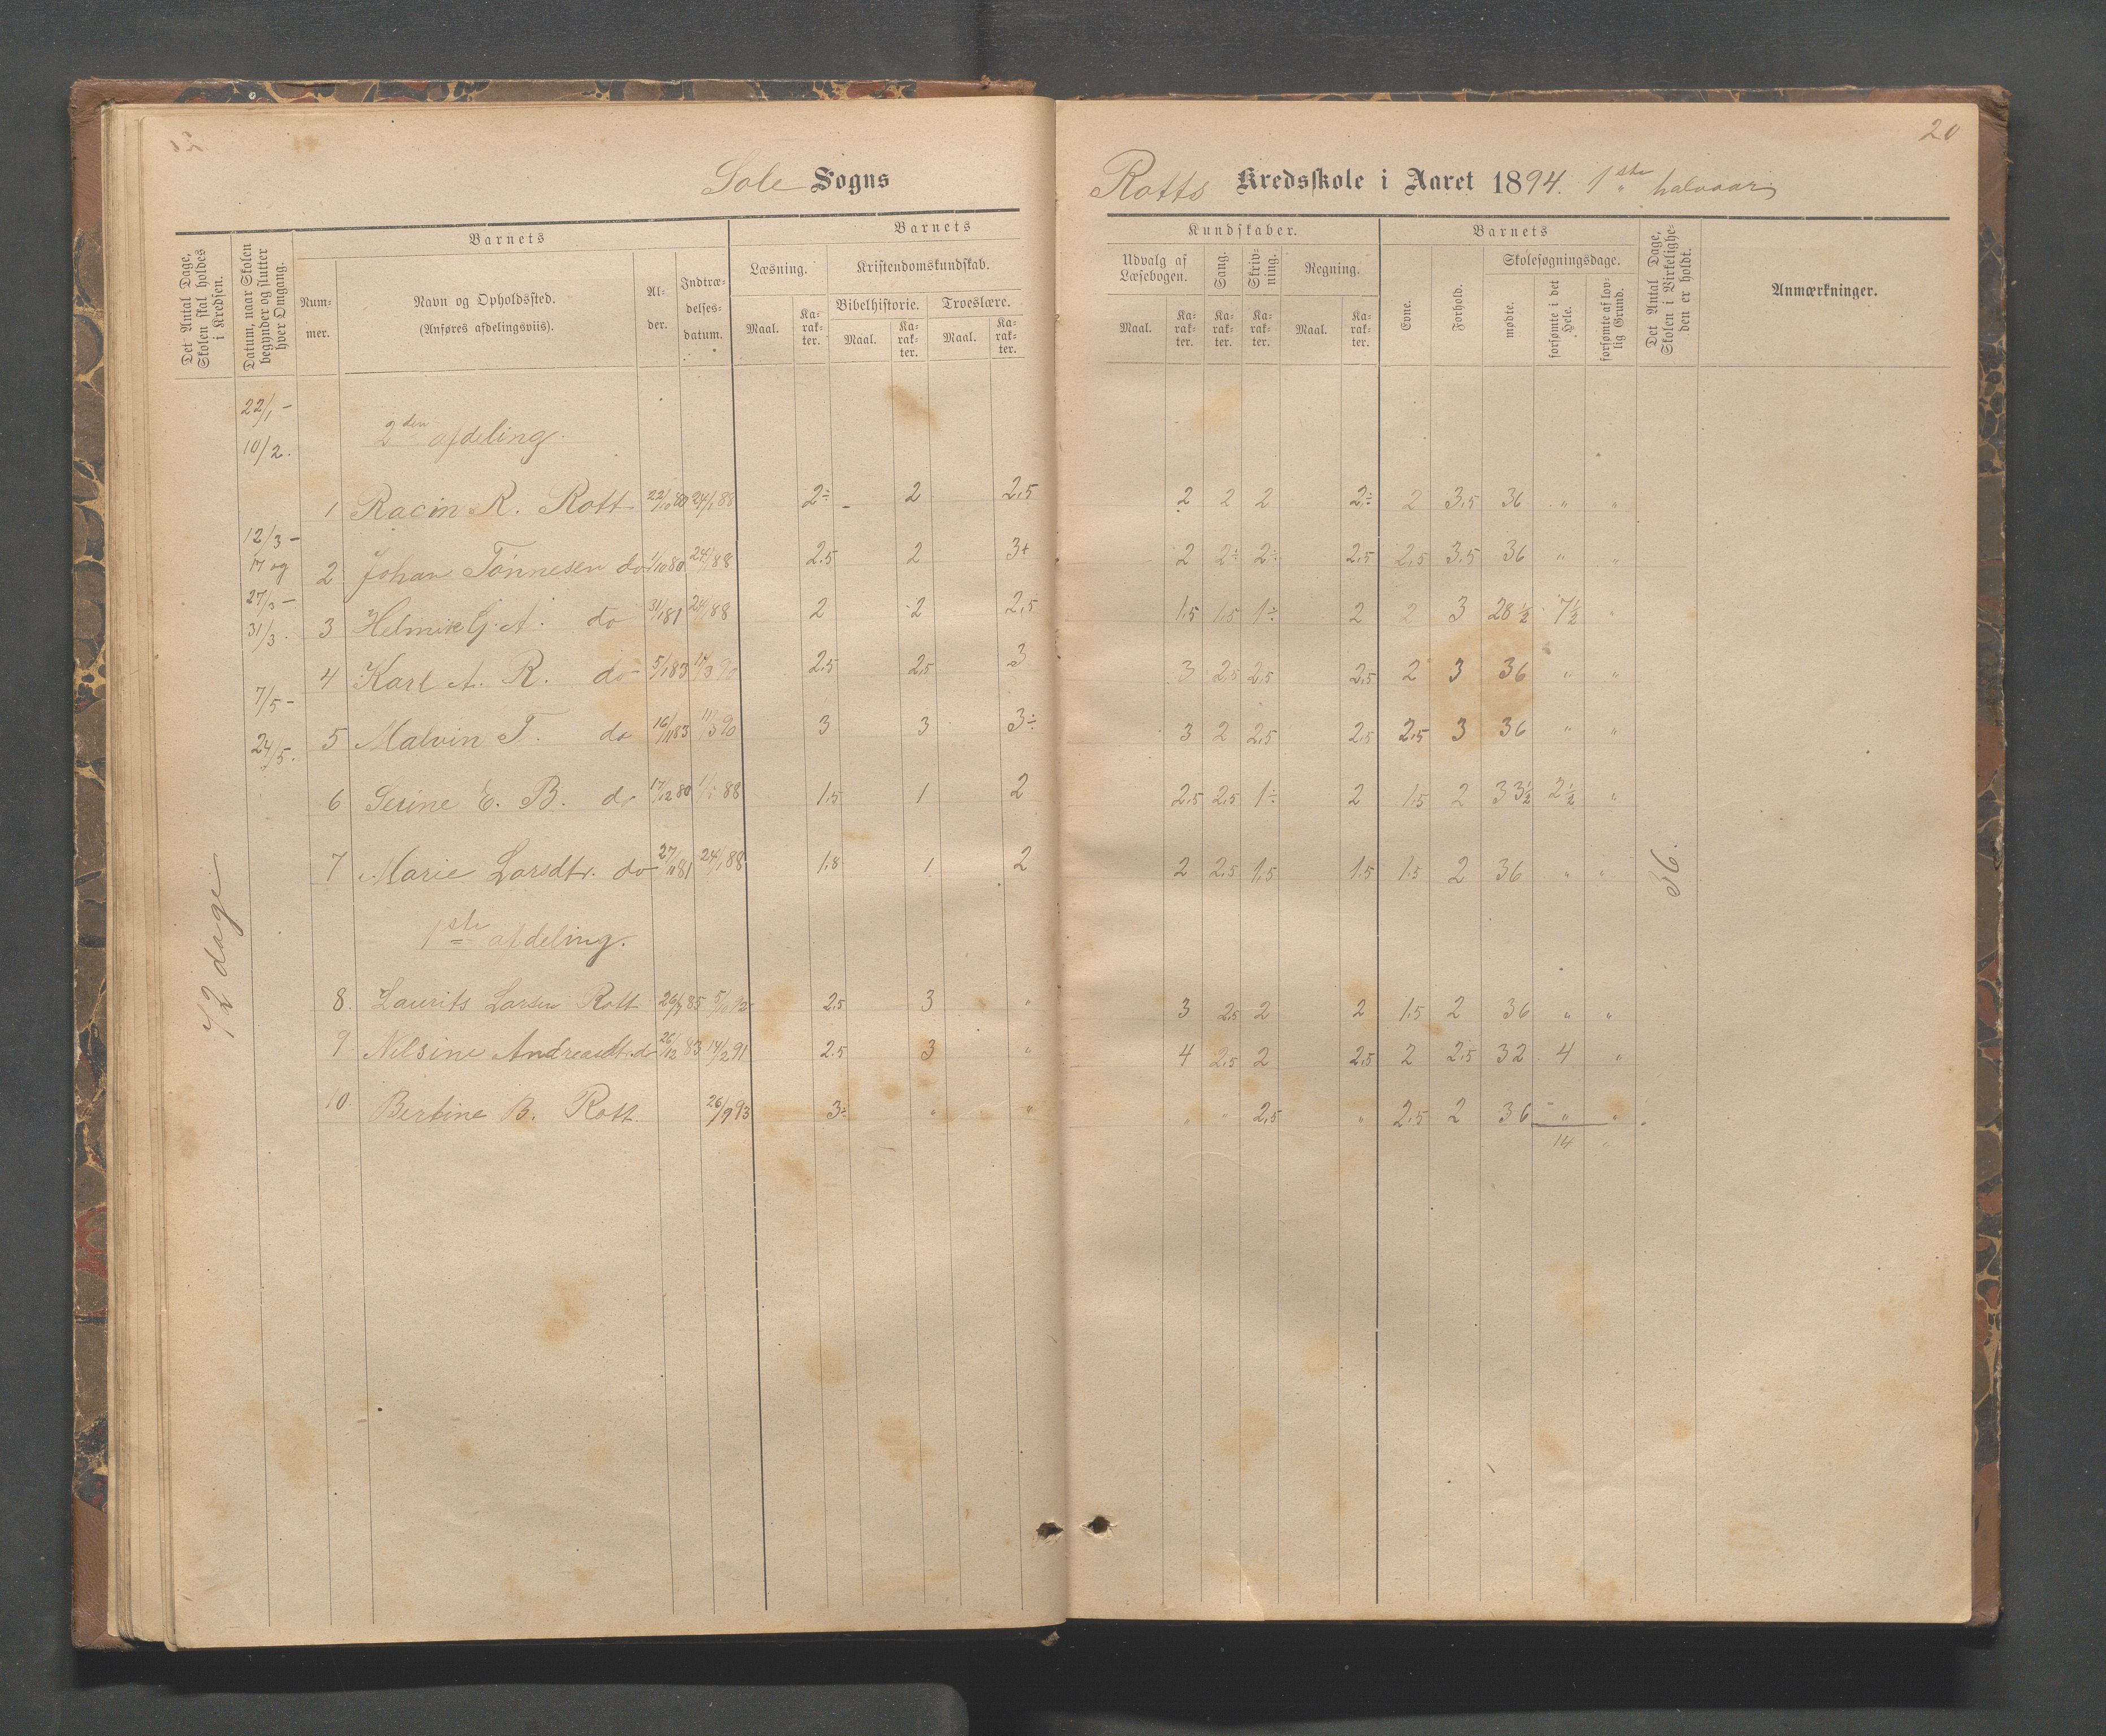 20
Sole Sogns Rotts Kredsskole i Aaret 1894. 1ste halvaar
Det Antal Dage, Skolen skal holdes i Kredsen.
Datum, naar Skolen begynder og slutter hver Omgang.
Barnets
Nummer.
Navn og Opholdssted.
(Anføres afdelingsviis).
Alder.
Indtrædelsesdatum.
Barnets Kundskaber.
Læsning.
Maal. Karakter.
Kristendomskundskab.
Bibelhistorie. Troeslære.
Maal. Karakter. Maal. Karakter.
Udvalg af Læsebogen.
Maal. Karakter.
Sang. Karakter.
Skrivning. Karakter.
Regning.
Maal. Karakter.
Barnets
Evne. Forhold.
Skolesøgningsdage.
mødte. forsømte i det Hele. forsømte af lovlig Grund.
Det Antal Dage, Skolen i Virkeligheden er holdt.
Anmærkninger.
22/1 –
10/2.
12/3 –
17 og
27/3 –
31/3.
7/5 –
24/5.
72 dage
2den afdeling.
1 Racin R. Rott 22/10 80 24/1 88 2÷ 2 2,5 2 2 2 2÷ 2 3,5 36 " "
2 Johan Tønnesen do 1/10 80 24/1 88 2,5 2 3+ 2 2÷ 2÷ 2,5 2,5 3,5 36 " "
3 Helmik G. A. do 31/1 81 24/1 88 2 2 2,5 1,5 1,5 1÷ 2 2 3 28½ 7½ "
4 Karl A. R. do 5/1 83 17/3 90 2,5 2,5 3 3 2,5 2,5 2,5 2 3 36 " "
5 Malvin T. do 16/11 83 11/3 90 3 3 3÷ 3 2 2,5 2,5 2,5 3 36 " "
6 Serine E. B. do 17/12 80 88 1,5 1 2 2,5 2,5 1÷ 2 1,5 2 33½ 2½ "
7 Marie Larsdtr. do 27/11 81 24/1 88 1,8 1 2 2 2,5 1,5 1,5 1,5 2 36 " "
36.
1ste afdeling.
8. Laurits Larsen Rott 85 92 2,5 3 " 3 2,5 2 2 1,5 2 36 " "
9. Nilsine Andreasdt. do 26/12 83 14/2 91 2,5 3 " 4 2,5 2 2,5 2 2,5 32 4 "
10. Bertine B. Rott. 26/9 93 3÷ " " " " 2,5 " 2,5 2 36 " "
14 "